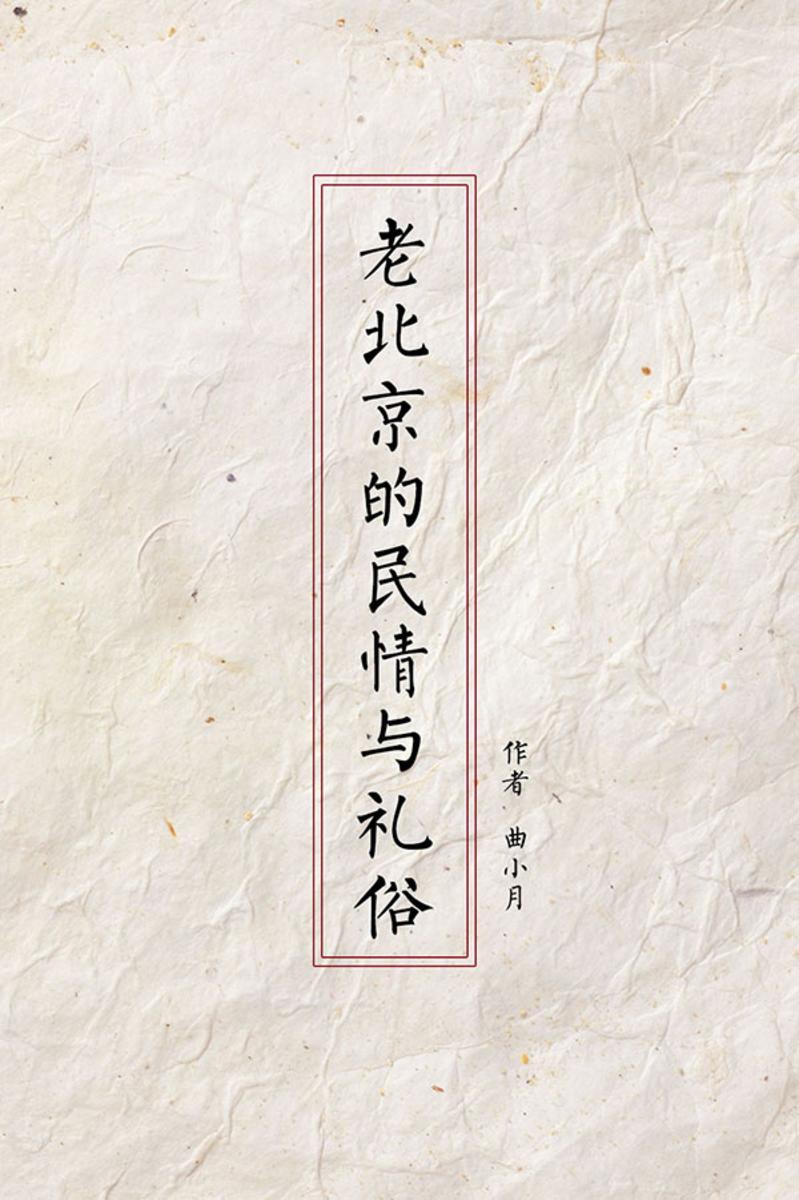 老北京的民情与礼俗
作者 曲小月